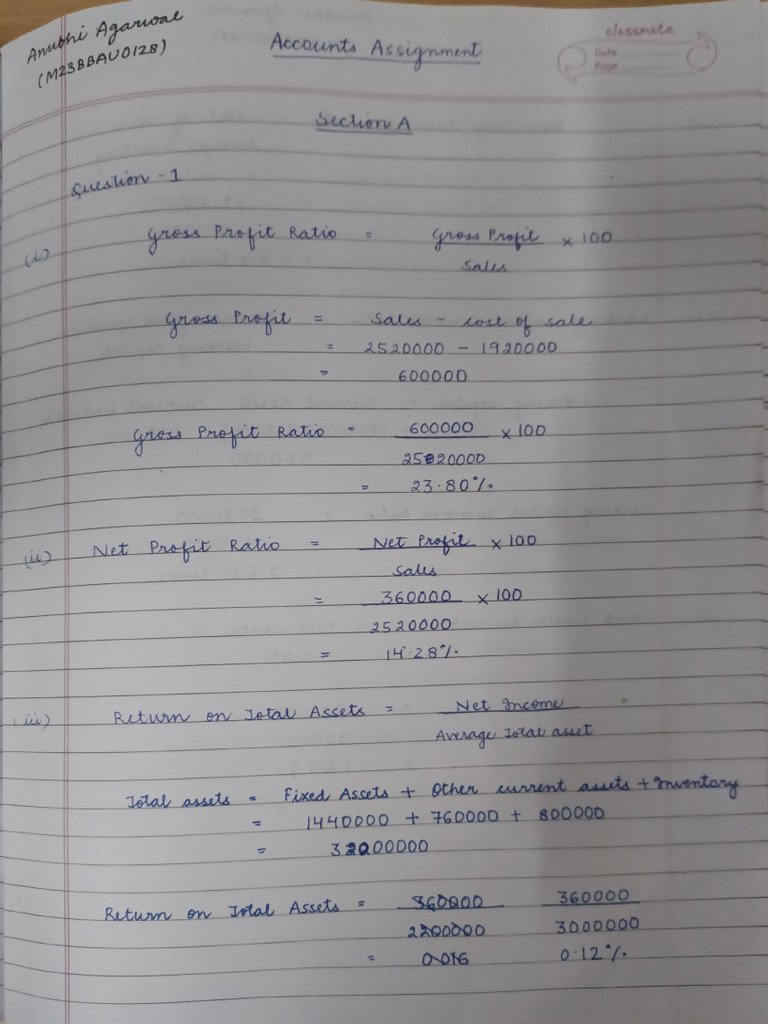 Anubhi Agarwal
(M23BBAU0128)
Accounts Assignment
classmate
Date
Page
Section A
Question - 1
(i) Gross Profit Ratio = Gross Profit × 100
Sales
Gross Profit = Sales - cost of sale
= 2520000 - 1920000
= 600000
Gross Profit Ratio = 600000 × 100
2520000
= 23.80%
(ii) Net Profit Ratio = Net Profit × 100
Sales
= 360000 × 100
2520000
= 14.28%
(iii) Return on Total Assets = Net Income
Average Total asset
Total assets = Fixed Assets + Other current assets + Inventory
= 1440000 + 760000 + 800000
=
Return on Total Assets = 360000 360000
2200000 3000000
= 0.016 0.12%